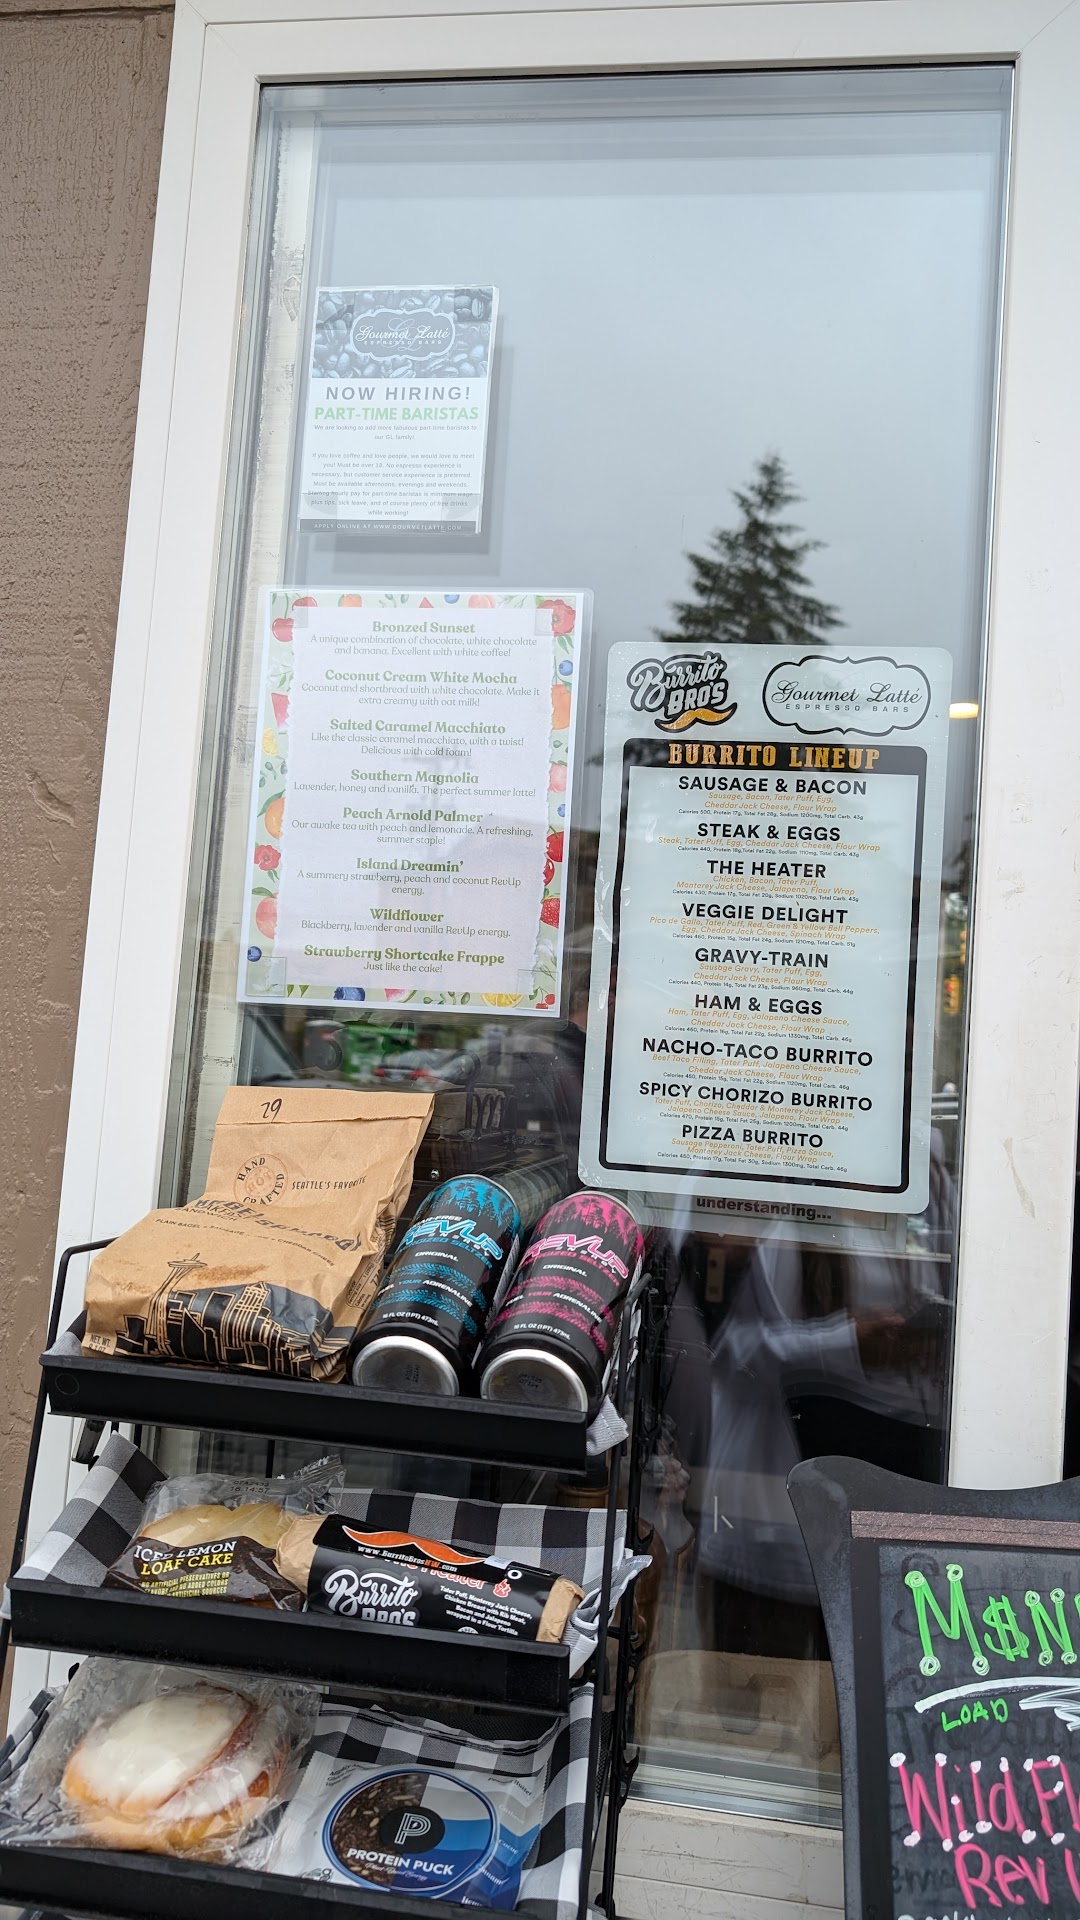 Gourmet Latté
ESPRESSO BARS
NOW HIRING!
PART-TIME BARISTAS
We are looking to add more fabulous part-time baristas to
our GL family!
If you love coffee and love people, we would love to meet
you! Must be over 18. No espresso experience is
necessary, but customer service experience is preferred.
Must be available afternoons, evenings and weekends.
Starting hourly pay for part-time baristas is minimum wage
plus tips, sick leave, and of course plenty of free drinks
while working!
APPLY ONLINE AT WWW.GOURMETLATTE.COM
Bronzed Sunset
A unique combination of chocolate, white chocolate
and banana. Excellent with white coffee!
Coconut Cream White Mocha
Coconut and shortbread with white chocolate. Make it
extra creamy with oat milk!
Salted Caramel Macchiato
Like the classic caramel macchiato, with a twist!
Delicious with cold foam!
Southern Magnolia
Lavender, honey and vanilla. The perfect summer latte!
Peach Arnold Palmer
Our awake tea with peach and lemonade. A refreshing,
summer staple!
Island Dreamin'
A summery strawberry, peach and coconut RevUp
energy.
Wildflower
Blackberry, lavender and vanilla RevUp energy.
Strawberry Shortcake Frappe
Just like the cake!
Burrito
BRO'S
Gourmet Latté
ESPRESSO BARS
BURRITO LINEUP
SAUSAGE & BACON
Sausage, Bacon, Tater Puff, Egg,
Cheddar Jack Cheese, Flour Wrap
Calories 500, Protein 17g, Total Fat 28g, Sodium 1200mg, Total Carb. 43g
STEAK & EGGS
Steak, Tater Puff, Egg, Cheddar Jack Cheese, Flour Wrap
Calories 440, Protein 18g, Total Fat 22g, Sodium 1110mg, Total Carb. 43g
THE HEATER
Chicken, Bacon, Tater Puff,
Monterey Jack Cheese, Jalapeno, Flour Wrap
Calories 430, Protein 17g, Total Fat 20g, Sodium 1020mg, Total Carb. 43g
VEGGIE DELIGHT
Pico de Gallo, Tater Puff, Red, Green & Yellow Bell Peppers,
Egg, Cheddar Jack Cheese, Spinach Wrap
Calories 460, Protein 15g, Total Fat 24g, Sodium 1210mg, Total Carb. 51g
GRAVY-TRAIN
Sausage Gravy, Tater Puff, Egg,
Cheddar Jack Cheese, Flour Wrap
Calories 440, Protein 14g, Total Fat 23g, Sodium 960mg, Total Carb. 44g
HAM & EGGS
Ham, Tater Puff, Egg, Jalapeno Cheese Sauce,
Cheddar Jack Cheese, Flour Wrap
Calories 460, Protein 16g, Total Fat 22g, Sodium 1330mg, Total Carb. 46g
NACHO-TACO BURRITO
Beef Taco Filling, Tater Puff, Jalapeno Cheese Sauce,
Cheddar Jack Cheese, Flour Wrap
Calories 450, Protein 15g, Total Fat 22g, Sodium 1120mg, Total Carb. 46g
SPICY CHORIZO BURRITO
Tater Puff, Chorizo, Cheddar & Monterey Jack Cheese,
Jalapeno Cheese Sauce, Jalapeno, Flour Wrap
Calories 470, Protein 15g, Total Fat 25g, Sodium 1200mg, Total Carb. 44g
PIZZA BURRITO
Sausage Pepperoni, Tater Puff, Pizza Sauce,
Monterey Jack Cheese, Flour Wrap
Calories 480, Protein 17g, Total Fat 30g, Sodium 1300mg, Total Carb. 46g
understanding...
29
HAND
CRAFTED
SEATTLE'S FAVORITE
PLAIN BAGEL
NET WT.
REVUP
ENERGY
ORIGINAL
YOUR ADRENALINE
16 FL OZ (1 PT) 473mL
REVUP
ENERGY
ORIGINAL
YOUR ADRENALINE
16 FL OZ (1 PT) 473mL
16:14:57
ICED LEMON
LOAF CAKE
NO ARTIFICIAL PRESERVATIVES OR
www.BurritoBrosNW.com
Heater
Burrito
BRO'S
Tater Puff, Monterey Jack Cheese,
Chicken Breast with Rib Meat,
Bacon and Jalapeno
wrapped in a Flour Tortilla
P
PROTEIN PUCK
M$N
LOAD
Wild Fl
Rev U